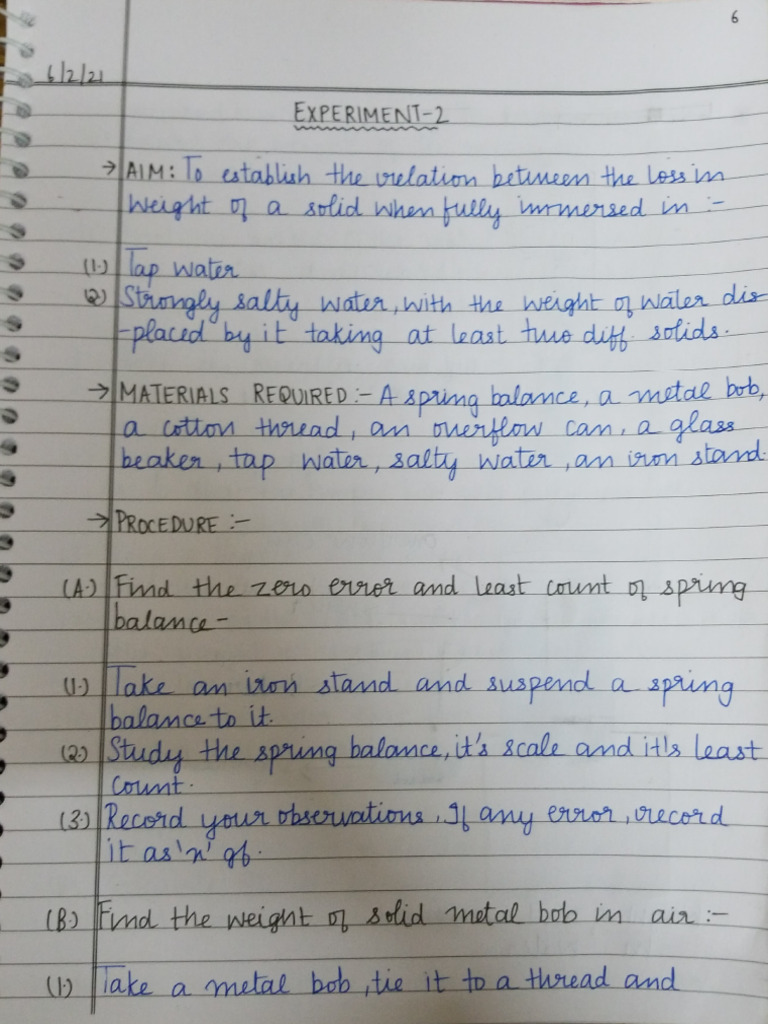 6
6/2/21
EXPERIMENT-2
→ AIM: To establish the relation between the loss in
weight of a solid when fully immersed in :-
(1.) Tap water
(2) Strongly salty water, with the weight of water dis-
-placed by it taking at least two diff. solids.
→ MATERIALS REQUIRED :- A spring balance, a metal bob,
a cotton thread, an overflow can, a glass
beaker, tap water, salty water, an iron stand.
→ PROCEDURE :-
(A.) Find the zero error and least count of spring
balance -
(1.) Take an iron stand and suspend a spring
balance to it.
(2.) Study the spring balance, it's scale and it's least
count.
(3.) Record your observations. If any error, record
it as 'x' gf.
(B.) Find the weight of solid metal bob in air :-
(1.) Take a metal bob, tie it to a thread and